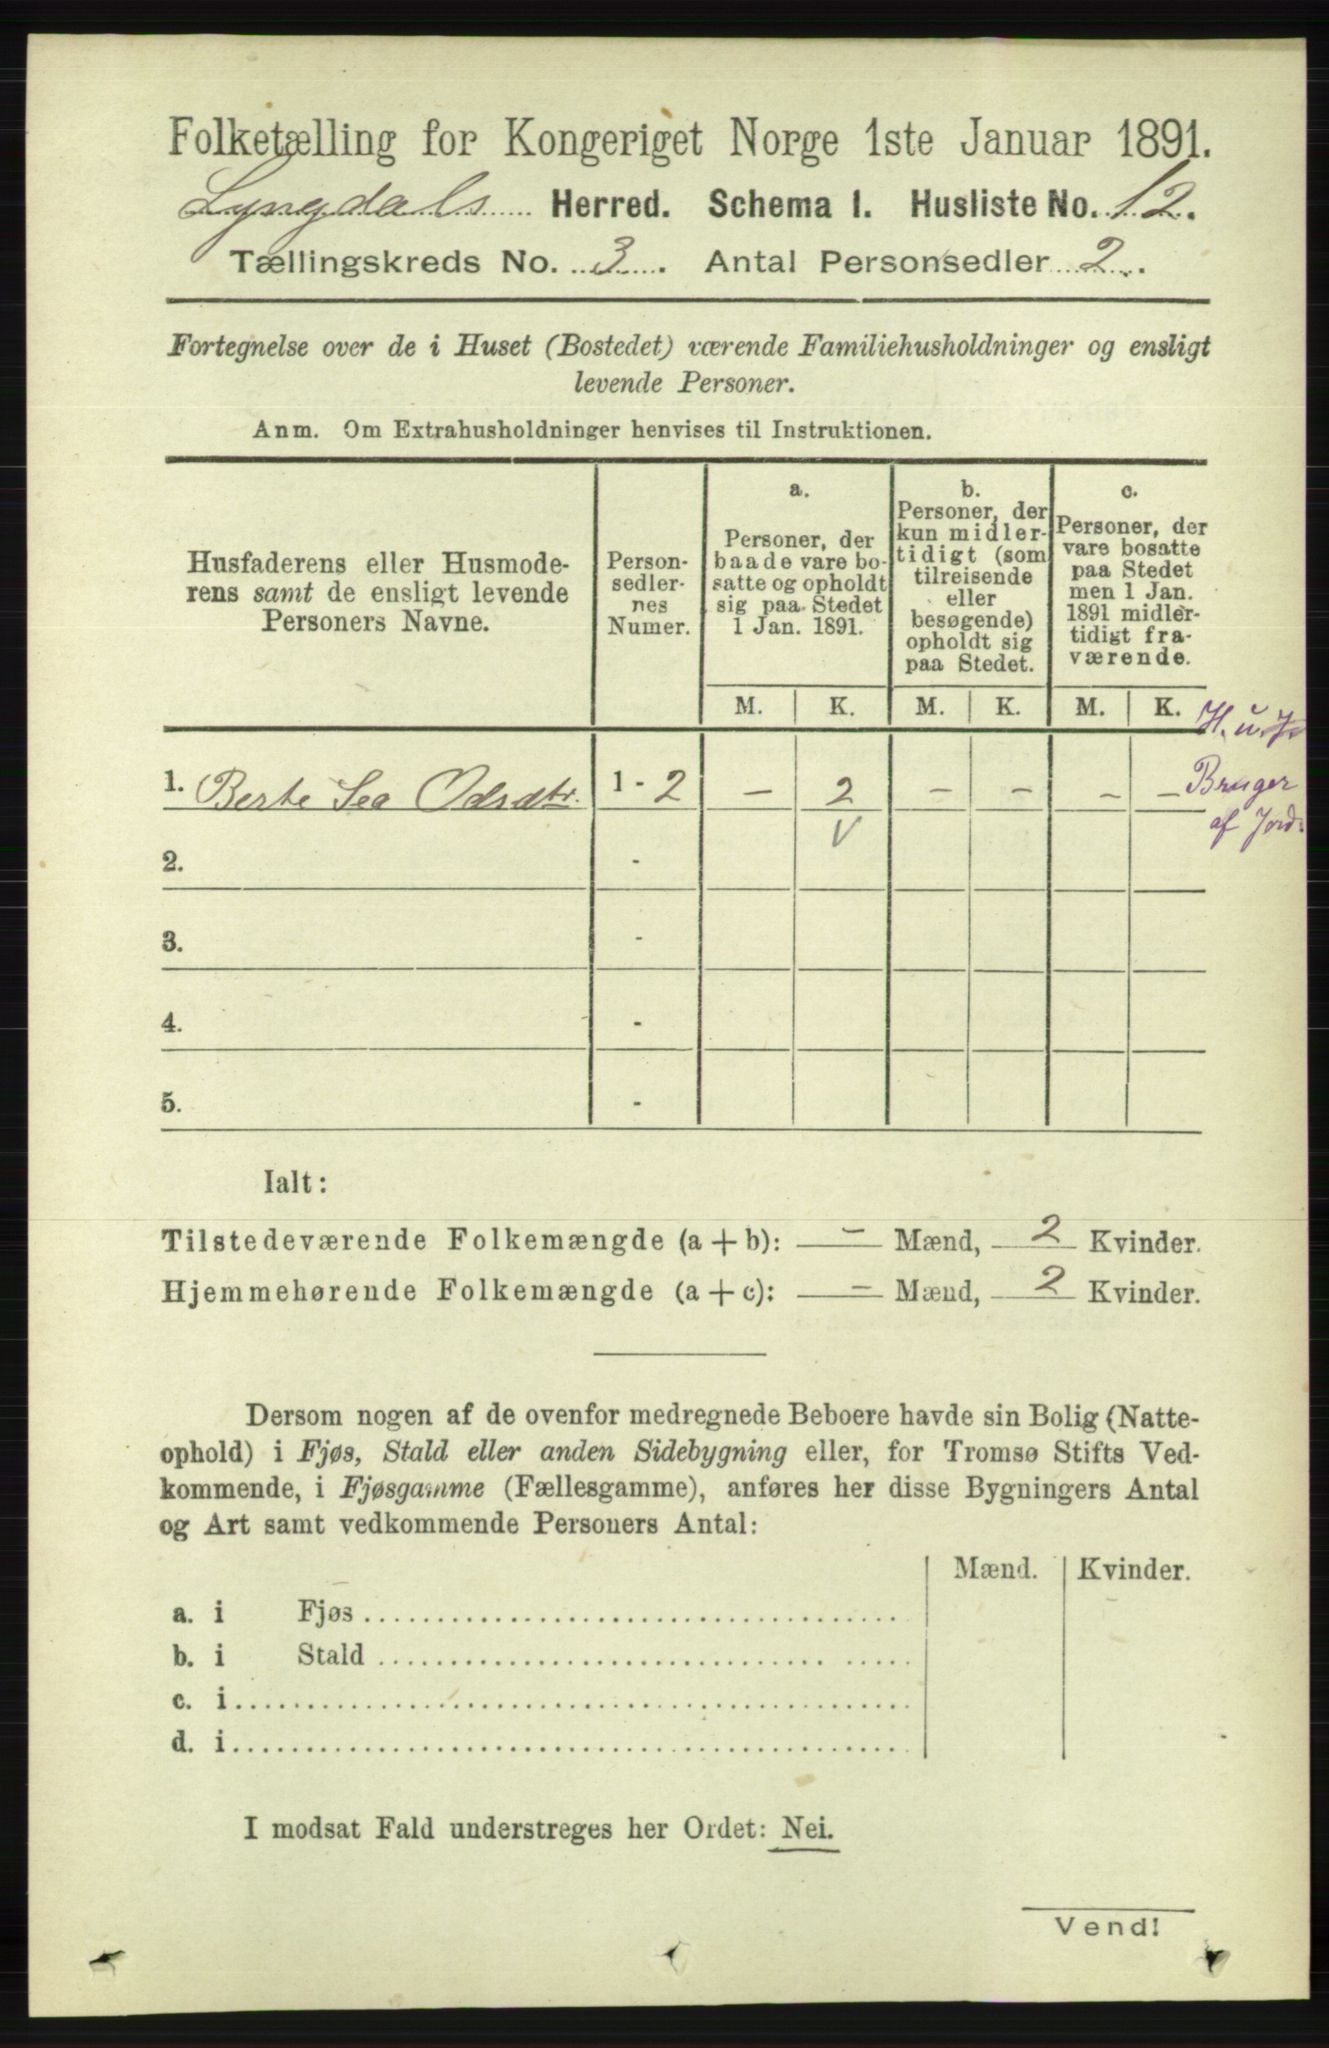 Folketælling for Kongeriget Norge 1ste Januar 1891.
Lyngdals Herred. Schema I. Husliste No. 12.
Tællingskreds No. 3. Antal Personsedler 2.
Fortegnelse over de i Huset (Bostedet) værende Familiehusholdninger og ensligt
levende Personer.
Anm. Om Extrahusholdninger henvises til Instruktionen.
Husfaderens eller Husmode-
rens samt de ensligt levende
Personers Navne.
Person-
sedler-
nes
Numer.
a.
Personer, der
baade vare bo-
satte og opholdt
sig paa Stedet
1 Jan. 1891.
b.
Personer, der
kun midler-
tidigt (som
tilreisende
eller
besøgende)
opholdt sig
paa Stedet.
c.
Personer, der
vare bosatte
paa Stedet
men 1 Jan.
1891 midler-
tidigt fra-
værende.
M. K. M. K. M. K.
H. u. J
1. Berte Sea Odsdtr. 1 - 2 - 2 - - - - Bruger
V af Jord
2. -
3. -
4. -
5. -
Ialt:
Tilstedeværende Folkemængde (a + b): - Mænd, 2 Kvinder.
Hjemmehørende Folkemængde (a + c): - Mænd, 2 Kvinder.
Dersom nogen af de ovenfor medregnede Beboere havde sin Bolig (Natte-
ophold) i Fjøs, Stald eller anden Sidebygning eller, for Tromsø Stifts Ved-
kommende, i Fjøsgamme (Fællesgamme), anføres her disse Bygningers Antal
og Art samt vedkommende Personers Antal:
Mænd. Kvinder.
a. i Fjøs
b. i Stald
c. i
d. i
I modsat Fald understreges her Ordet: Nei.
Vend!